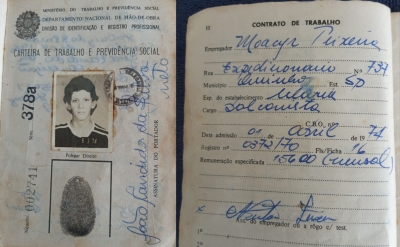 MINISTÉRIO DO TRABALHO E PREVIDÊNCIA SOCIAL
DEPARTAMENTO NACIONAL DE MÃO-DE-OBRA
DIVISÃO DE IDENTIFICAÇÃO E REGISTRO PROFISSIONAL
CARTEIRA DE TRABALHO E PREVIDÊNCIA SOCIAL
Série 378a
Polegar Direito
ASSINATURA DO PORTADOR
CONTRATO DE TRABALHO
Empregador Moacyr Teixeira
Rua Expedicionario Nº 737
Município Ourinhos Est. SP
Esp. do estabelecimento
Cargo Balconista
C.B.O. nº
Data admissão 01 de abril de 1971
Registro nº 0372/70 Fls/Ficha 16
Remuneração especificada 156,00 (mensal)
Ass. do empregador ou a rôgo c/ test.